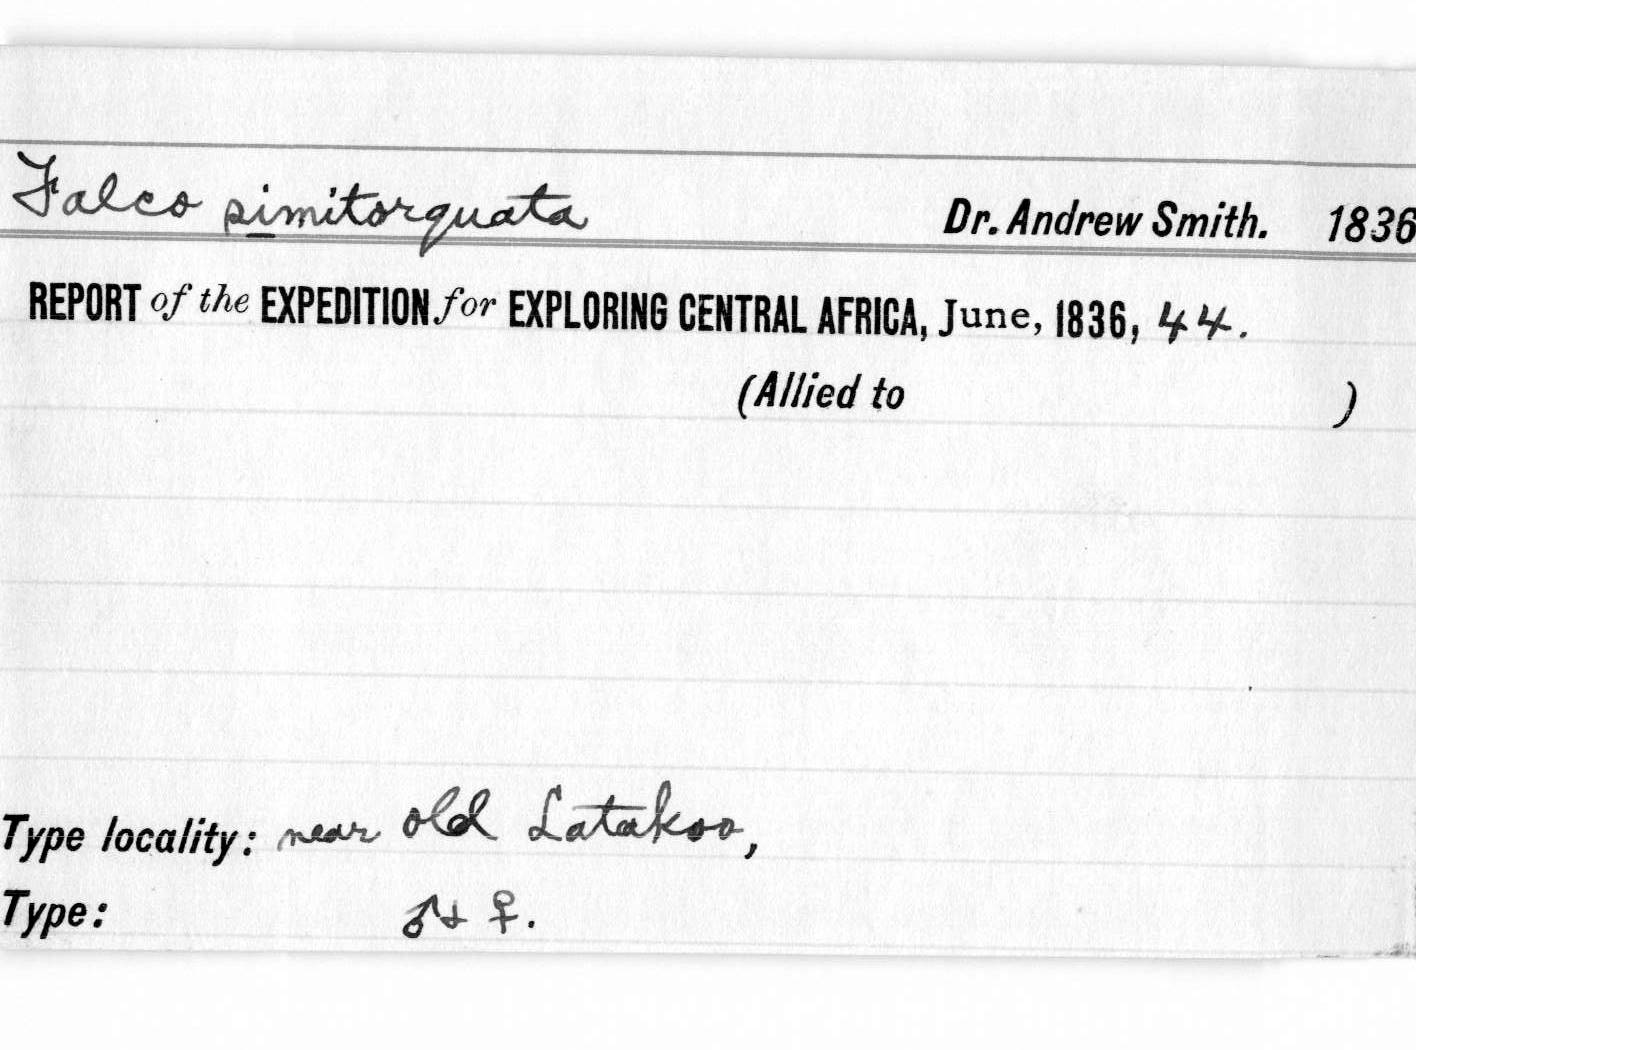 Falco simitorquata Dr. Andrew Smith. 1836
REPORT of the EXPEDITION for EXPLORING CENTRAL AFRICA, June, 1836, 44.
(Allied to )
Type locality: near old Latakoo,
Type: ♂ & ♀.